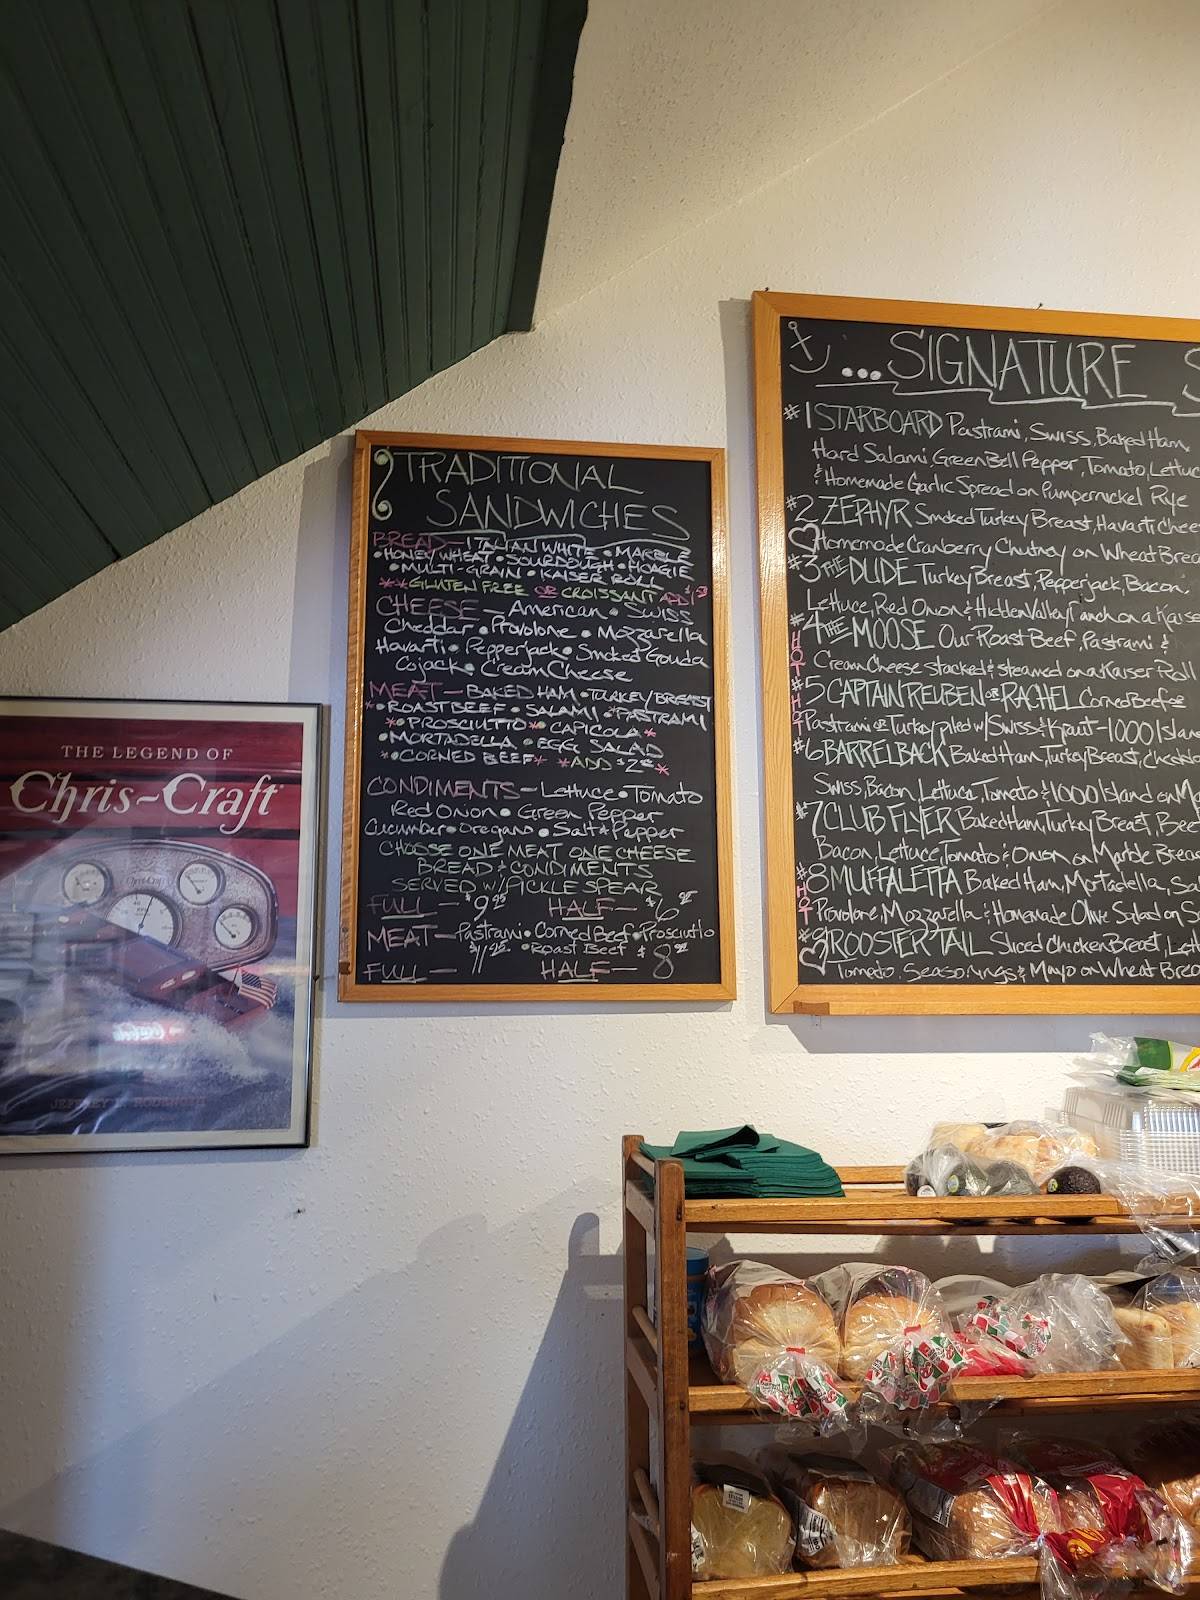 TRADITIONAL
SANDWICHES
BREAD - ITALIAN WHITE • MARBLE
• HONEY WHEAT • SOURDOUGH • HOAGIE
• MULTI-GRAIN • KAISER ROLL
**GLUTEN FREE OR CROISSANT ADD
CHEESE - American • Swiss
Cheddar • Provolone • Mozzarella
Havarti • Pepperjack • Smoked Gouda
Cojack • Cream Cheese
MEAT - BAKED HAM • TURKEY BREAST
*ROAST BEEF • SALAMI • *PASTRAMI
*PROSCIUTTO* • CAPICOLA*
• MORTADELLA • EGG SALAD
*CORNED BEEF* *ADD $2
CONDIMENTS - Lettuce • Tomato
Red Onion • Green Pepper
Cucumber • Oregano • Salt & Pepper
CHOOSE ONE MEAT ONE CHEESE
BREAD & CONDIMENTS
SERVED W/ PICKLE SPEAR
FULL - $9 HALF - $6
MEAT - Pastrami • Corned Beef • Prosciutto
• Roast Beef
FULL - $11 HALF - $8
... SIGNATURE S
#1 STARBOARD Pastrami, Swiss, Baked Ham,
Hard Salami, Green Bell Pepper, Tomato, Lettuce
& Homemade Garlic Spread on Pumpernickel Rye
#2 ZEPHYR Smoked Turkey Breast, Havarti Chee
Homemade Cranberry Chutney on Wheat Brea
#3 THE DUDE Turkey Breast, Pepperjack, Bacon,
Lettuce, Red Onion & Hidden Valley Ranch on a Kaise
#4 THE MOOSE Our Roast Beef, Pastrami &
HOT Cream Cheese stacked & steamed on a Kaiser Roll
#5 CAPTAIN REUBEN or RACHEL Corned Beef or
HOT Pastrami or Turkey piled w/ Swiss & Kraut - 1000 Islan
#6 BARRELBACK Baked Ham, Turkey Breast, Chedda
Swiss, Bacon, Lettuce, Tomato & 1000 Island on Ma
#7 CLUB FLYER Baked Ham, Turkey Breast, Bee
Bacon, Lettuce, Tomato & Onion on Marble Brea
#8 MUFFALETTA Baked Ham, Mortadella, Sa
HOT Provolone, Mozzarella & Homemade Olive Salad on S
#9 ROOSTER TAIL Sliced Chicken Breast, Lett
Tomato, Seasonings & Mayo on Wheat Brea
THE LEGEND OF
Chris-Craft
Chris-Craft